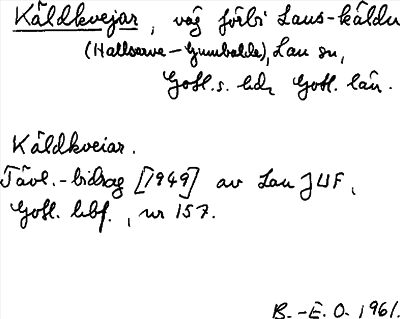 Käldkvejar, väg förbi Laus-käldu
(Hallsarve - Gumbalda), Lau sn,
Gotl. s. hd, Gotl. län.
Käldkveiar.
Tävl.-bidrag [1949] av Lau JUF,
Gotl. hbf., nr 157.
B.-E. O. 1961.